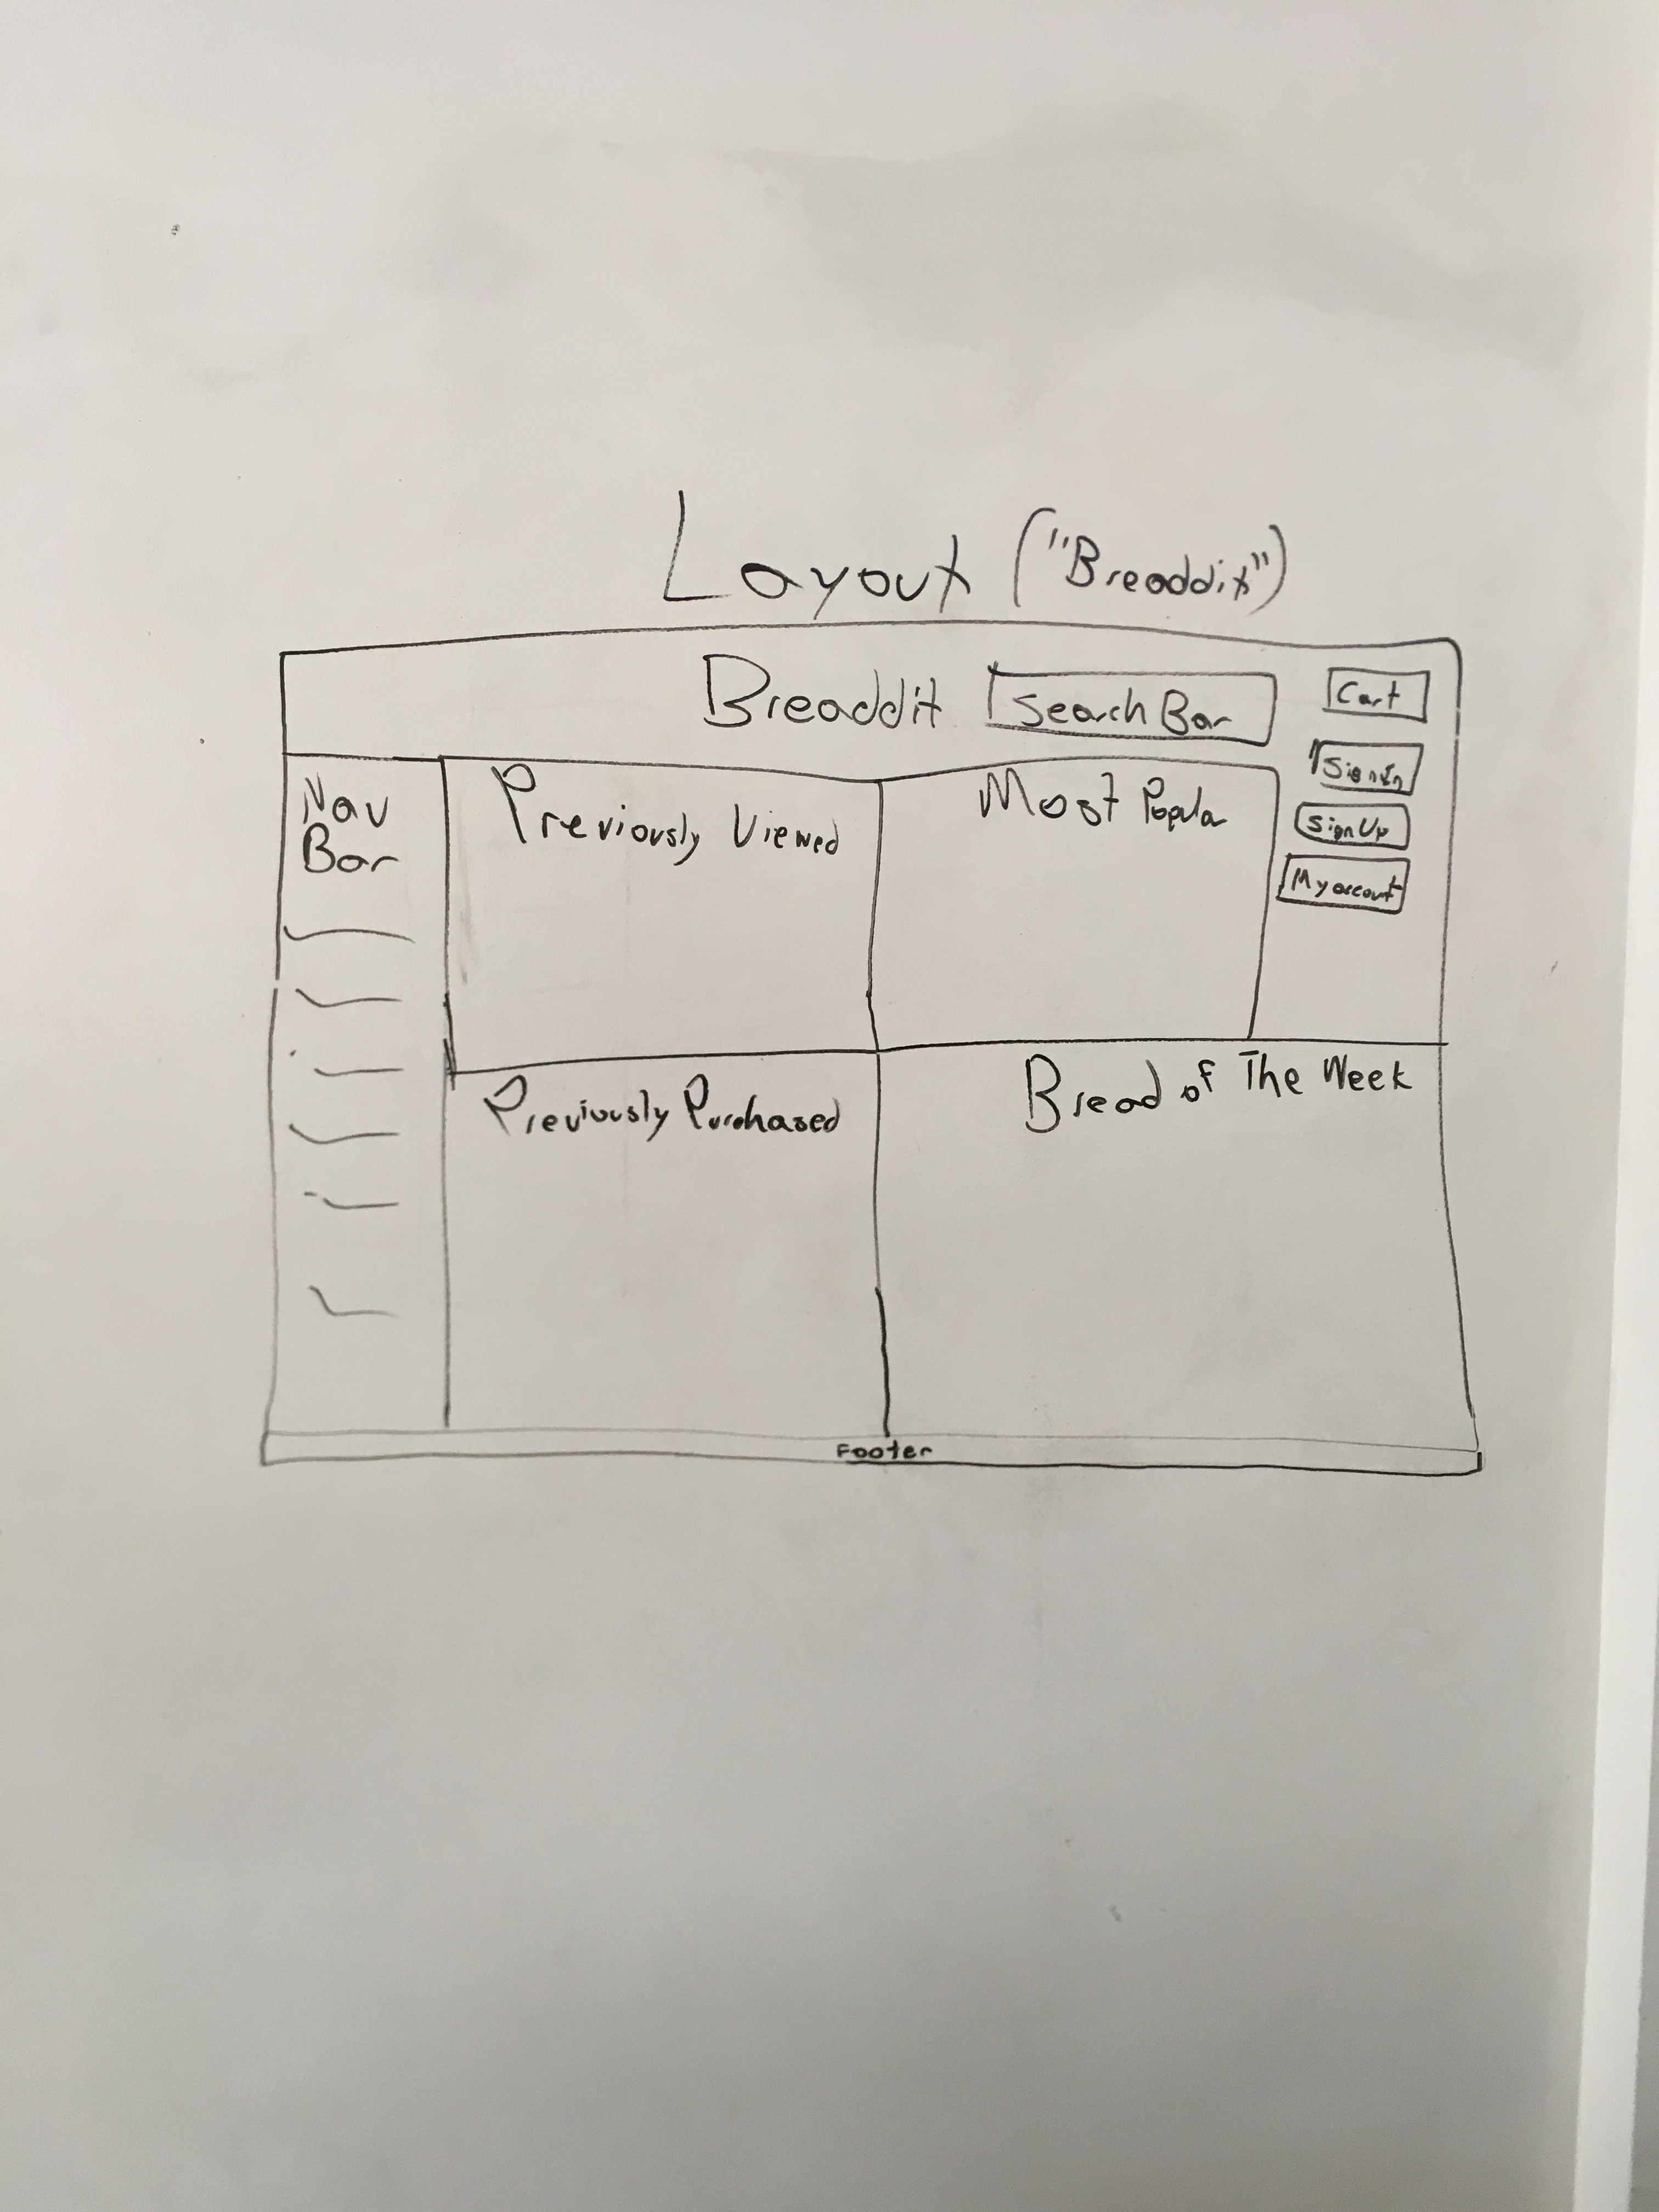 Layout ("Breaddit")
Breaddit
Search Bar
Cart
Sign In
Sign Up
My account
Nav
Bar
Previously Viewed
Most Popular
Previously Purchased
Bread of The Week
Footer